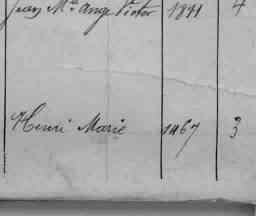 Jean Mie Ange Victor 1841 4
Henri Marie 1867 3